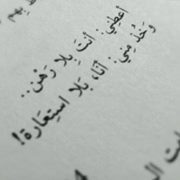 أعطِني: أنتَ بِلا رَهْن..
وَخُذْ مِنّي: أنَا، بَلا استِعَارة!